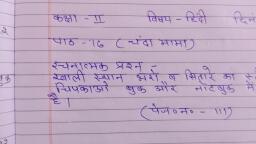 कक्षा - II विषय - हिंदी
पाठ - 16 (चंदा मामा)
रचनात्मक प्रश्न -
खाली स्थान भरो व सितारे का
चिपकाओ बुक और नोटबुक में
है।
(पेज०न० - 111)